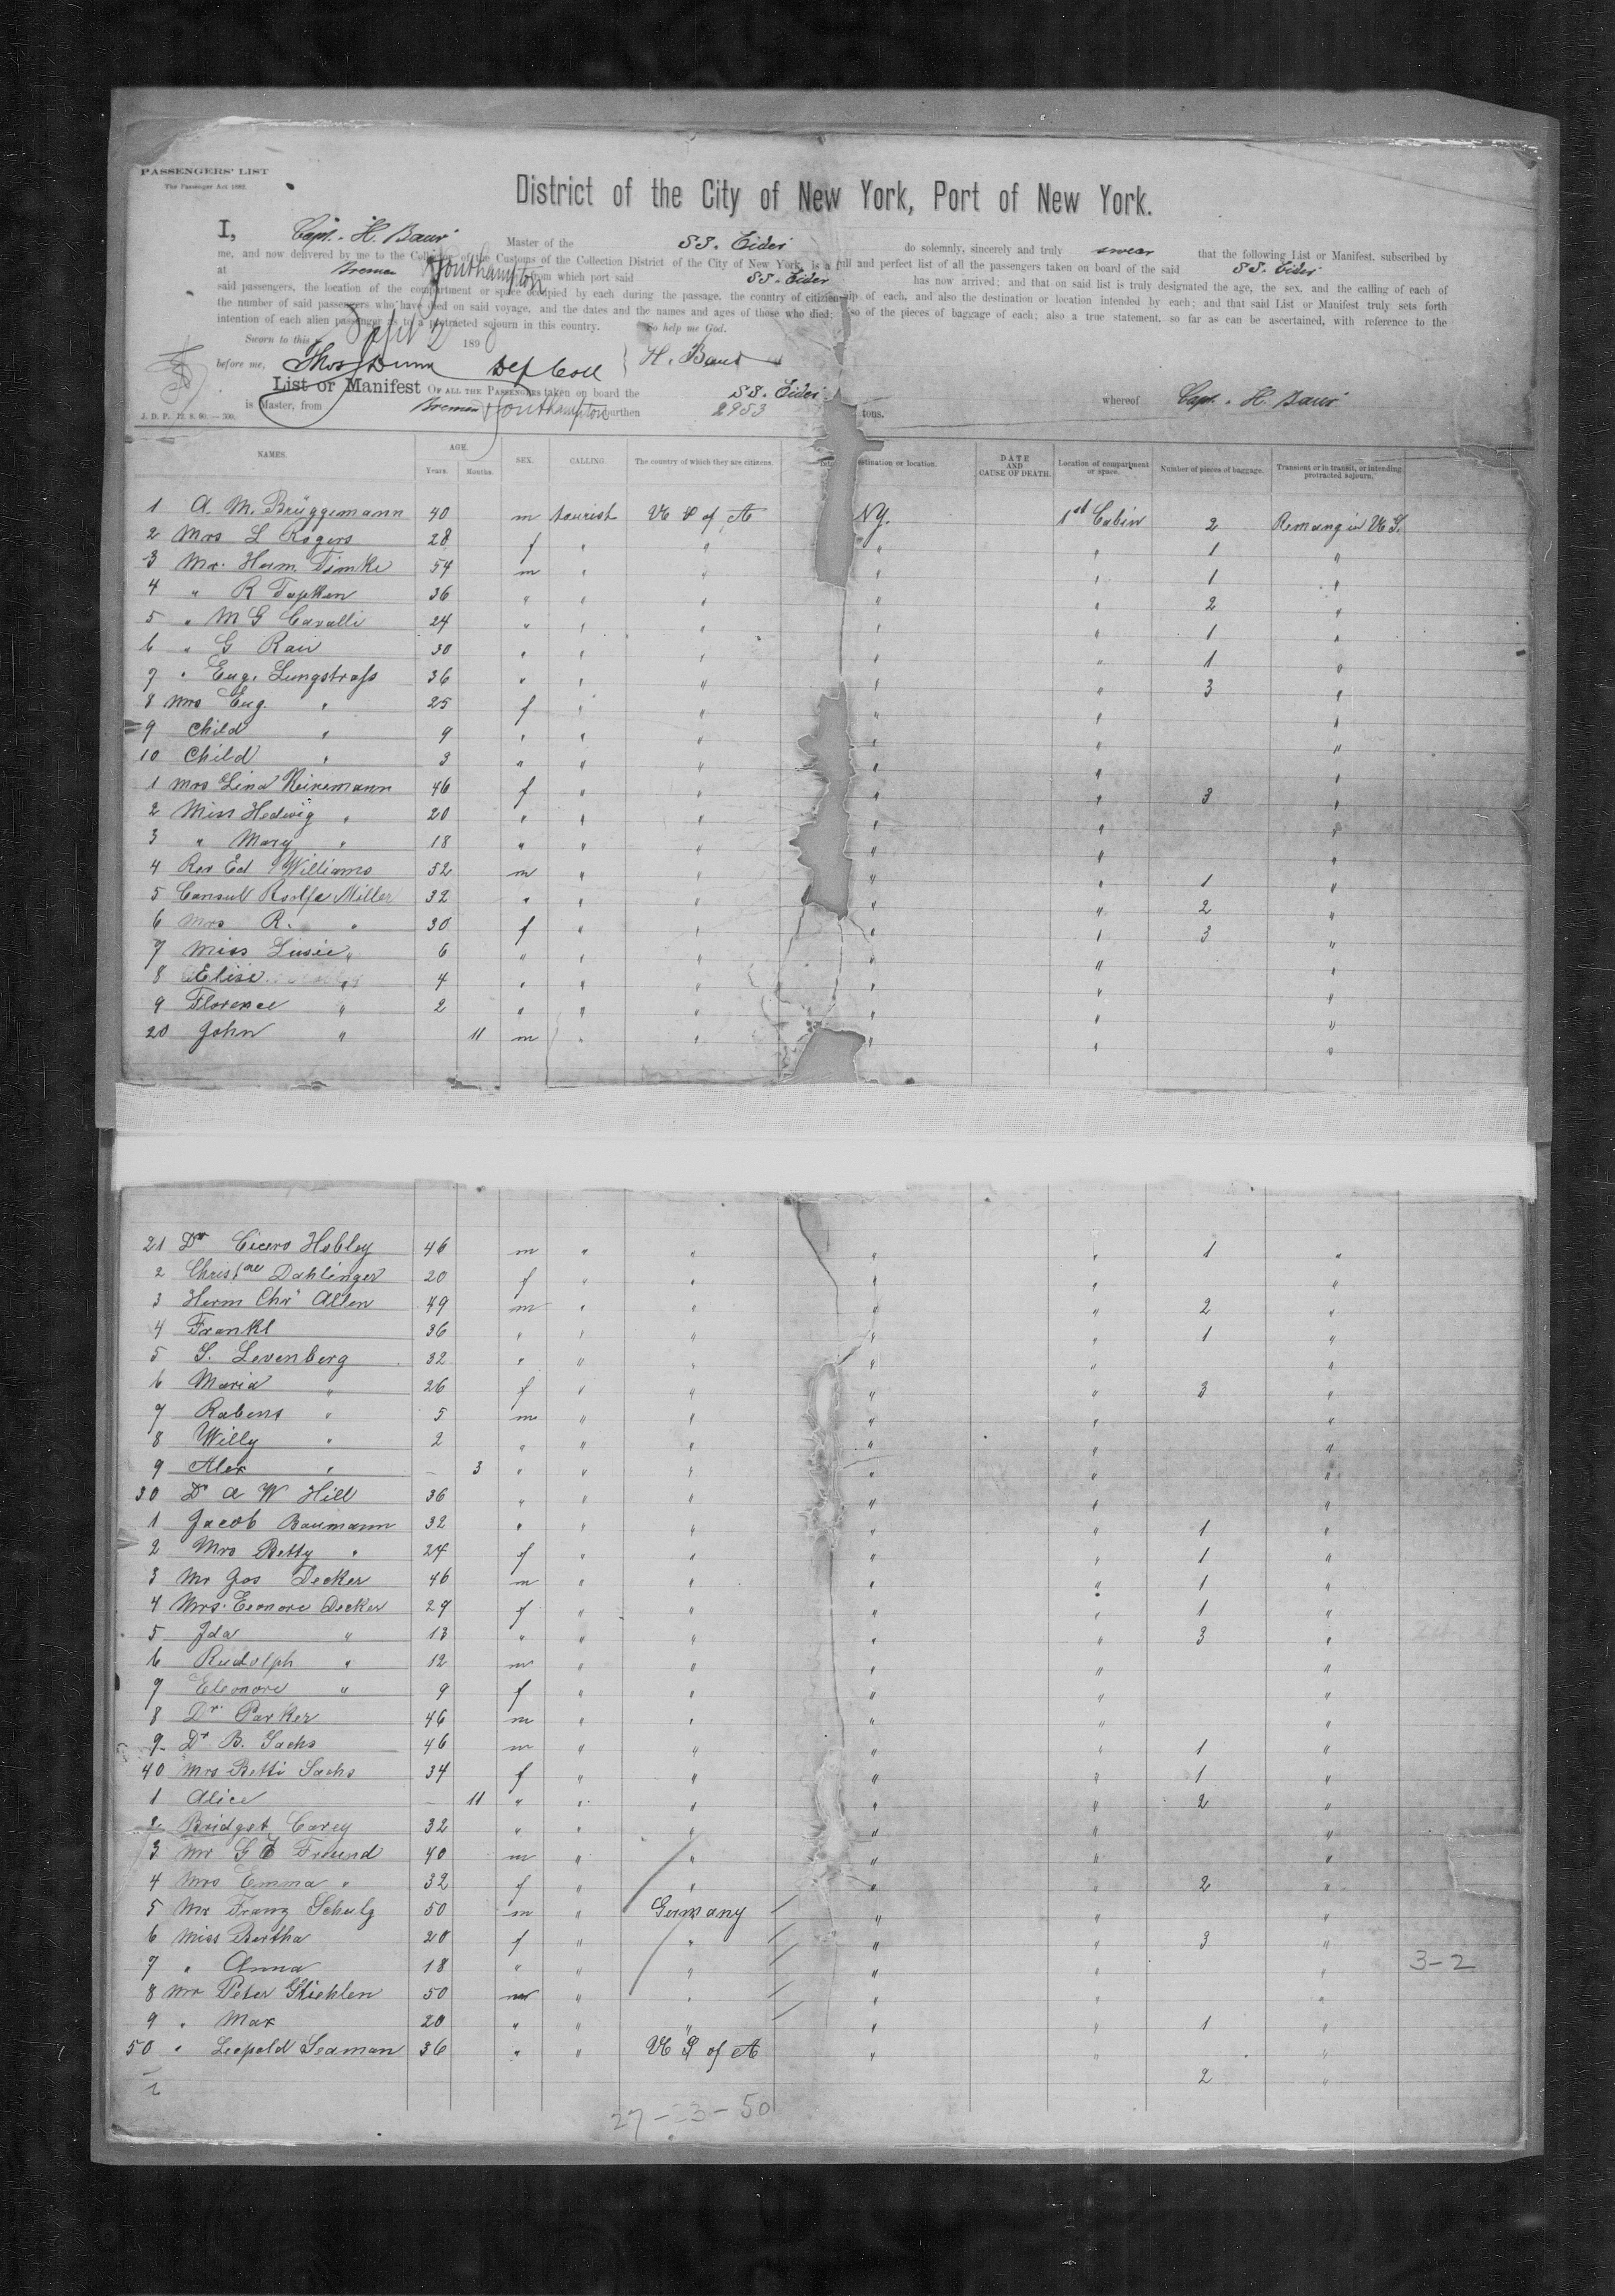 PASSENGERS' LIST
The Passenger Act 1882.
District of the City of New York, Port of New York.
I, Capt. H. Baur Master of the SS. Eider do solemnly, sincerely and truly swear that the following List or Manifest, subscribed by
me, and now delivered by me to the Collector of the Customs of the Collection District of the City of New York, is a full and perfect list of all the passengers taken on board of the said SS. Eider
at Bremen & Southampton from which port said SS. Eider has now arrived; and that on said list is truly designated the age, the sex, and the calling of each of
said passengers, the location of the compartment or space occupied by each during the passage, the country of citizenship of each, and also the destination or location intended by each; and that said List or Manifest truly sets forth
the number of said passengers who have died on said voyage, and the dates and the names and ages of those who died; also of the pieces of baggage of each; also a true statement, so far as can be ascertained, with reference to the
intention of each alien passenger as to a protracted sojourn in this country. So help me God.
Sworn to this Sept 2 1890
before me, Thos Dunn Dep Coll H. Baur
List or Manifest OF ALL THE PASSENGERS taken on board the SS. Eider whereof Capt. H. Baur
is Master, from Bremen & Southampton burthen 2953 tons.
J. D. P. 12. 8. 90.—500.
NAMES. AGE. Years. Months. SEX. CALLING. The country of which they are citizens. destination or location. DATE AND CAUSE OF DEATH. Location of compartment or space. Number of pieces of baggage. Transient or in transit, or intending protracted sojourn.
1 A. M. Brüggemann 40 m tourist U S of A NY. 1st Cabin 2 Remang in U S.
2 Mrs L Rogers 28 f " " " " 1 "
3 Mr. Herm. Timke 54 m " " " " 1 "
4 " R Topken 36 " " " " " 2 "
5 " M G Cavalli 24 " " " " " 1 "
6 " G Rau 30 " " " " " 1 "
7 " Eug. Lungstrass 36 " " " " " 3 "
8 Mrs Eug. " 25 f " " " " "
9 Child " 9 " " " " " "
10 Child " 3 " " " " " "
1 Mrs Lina Reinemann 46 f " " " " 3 "
2 Miss Hedwig " 20 " " " " " "
3 " Mary " 18 " " " " " "
4 Rev Ed Williams 52 m " " " " 1 "
5 Consul Miller 32 " " " " " 2 "
6 Mrs R. " 30 f " " " " 3 "
7 Miss Lusie " 6 " " " " " "
8 Elise " 4 " " " " " "
9 Florence " 2 " " " " " "
20 John " 11 m " " " " "
21 Dr Cicero Hobley 46 m " " " " 1 "
2 Christne Dahlinger 20 f " " " " "
3 Herm Chr Allen 49 m " " " " 2 "
4 Frankl 36 " " " " " 1 "
5 S. Levenberg 32 " " " " " "
6 Maria " 26 f " " " " 3 "
7 Rabens " 5 m " " " " "
8 Willy " 2 " " " " " "
9 Alex " — 3 " " " " " "
30 Dr A W Hill 36 " " " " " "
1 Jacob Baumann 32 " " " " " 1 "
2 Mrs Betty " 24 f " " " " 1 "
3 Mr Jos Decker 46 m " " " " 1 "
4 Mrs. Eeonore Decker 29 f " " " " 1 "
5 Ida " 13 " " " " " 3 "
6 Rudolph " 12 m " " " " "
7 Eleonore " 9 f " " " " "
8 Dr. Parker 46 m " " " " "
9 Dr B. Sachs 46 m " " " " 1 "
40 Mrs Betti Sachs 34 f " " " " 1 "
1 Alice — 11 " " " " " 2 "
2 Bridget Carey 32 " " " " " "
3 Mr G Freund 40 m " " " " "
4 Mrs Emma " 32 f " " " " 2 "
5 Mr Franz Schulz 50 m " Germany " " "
6 Miss Bertha 20 f " " " " 3 "
7 " Anna 18 " " " " " "
3-2
8 Mr Peter Stiehlen 50 m " " " " "
9 " Max 20 " " " " " 1 "
50 " Leopold Seaman 36 " " U S of A " " "
2 "
27-23-50